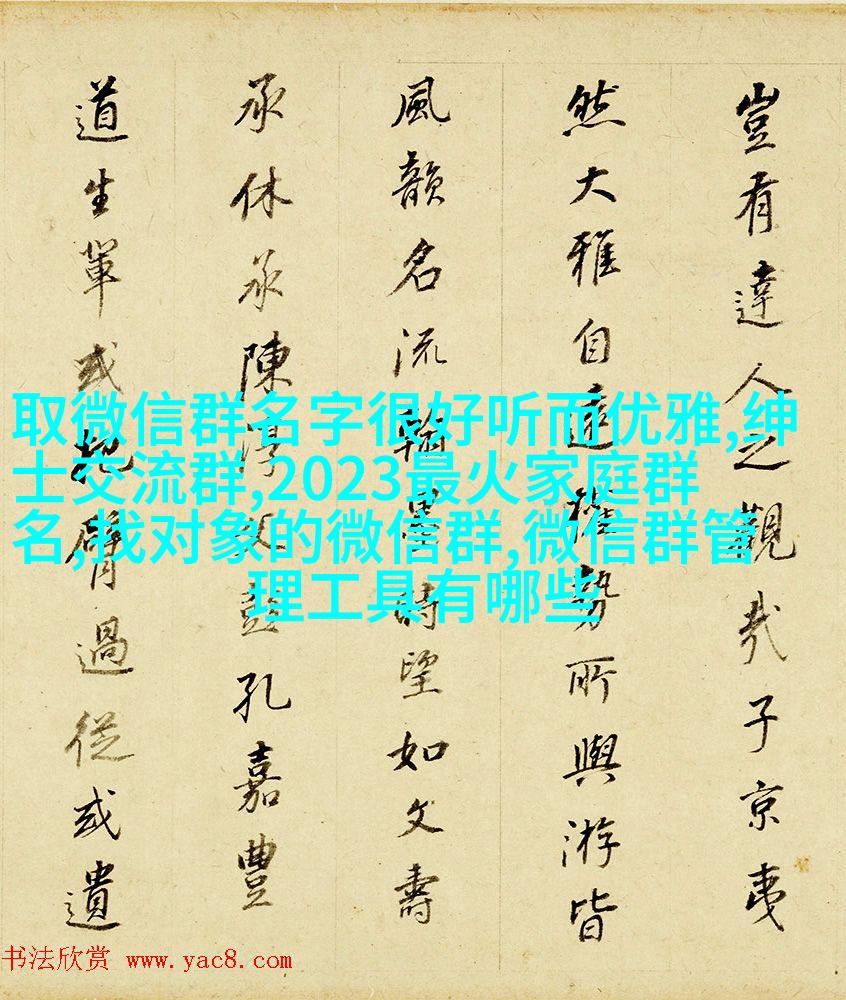 豈有達人之觀哉子京夷
然大雅自遠權勢所與游皆
風韻名流翰墨時望如文壽
承休承陳淳父彭孔嘉豐
道生軰或把臂過從或遺
取微信群名字很好听而优雅,绅
士交流群,2023最火家庭群
名,找对象的微信群,微信群管
理工具有哪些
书法欣赏 www.yac8.com